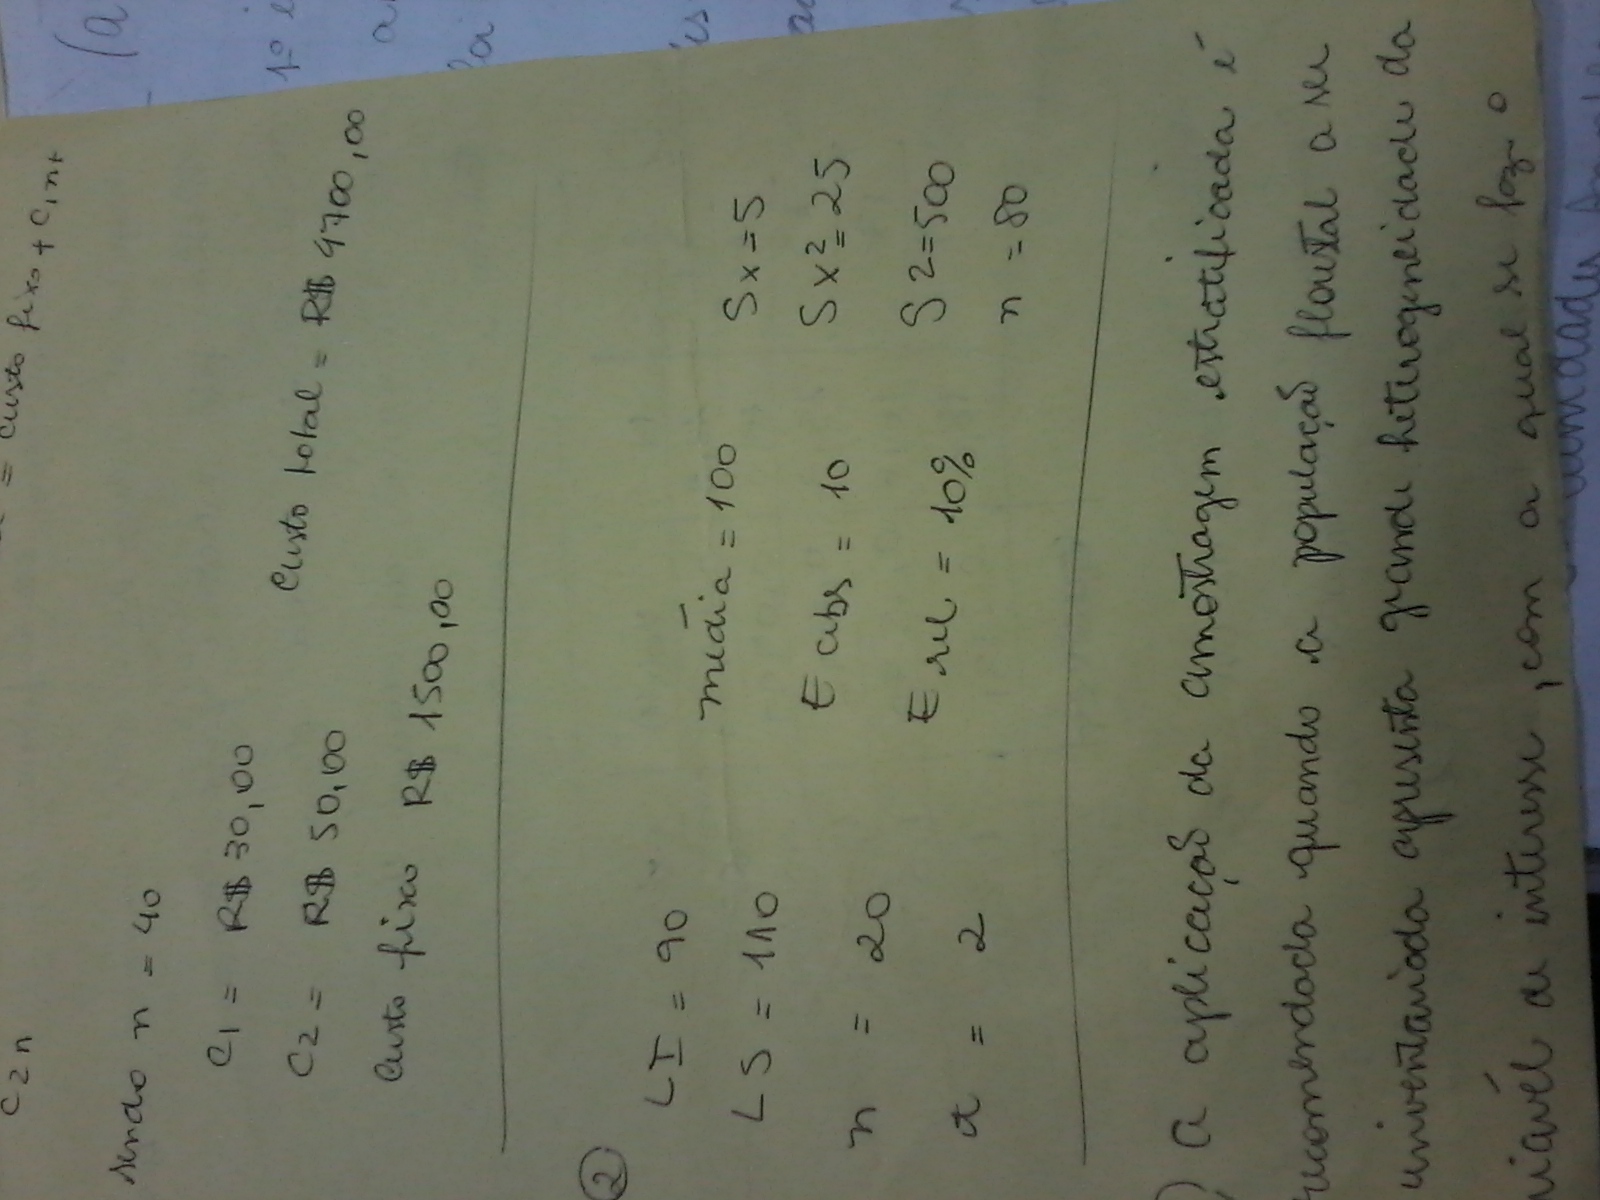 = custo fixo + C1n+
C2n
sendo n = 40
C1 = R$ 30,00
C2 = R$ 50,00 custo total = R$ 4700,00
custo fixo R$ 1500,00
2
LI = 90 média = 100 Sx = 5
LS = 110 E abs = 10 Sx² = 25
n = 20 E rel = 10% S2 = 500
t = 2 n = 80
) a aplicação da amostragem estratificada é
recomendada quando a população florestal a ser
inventariada apresenta grande heterogeneidade da
riável de interesse, com a qual se faz o